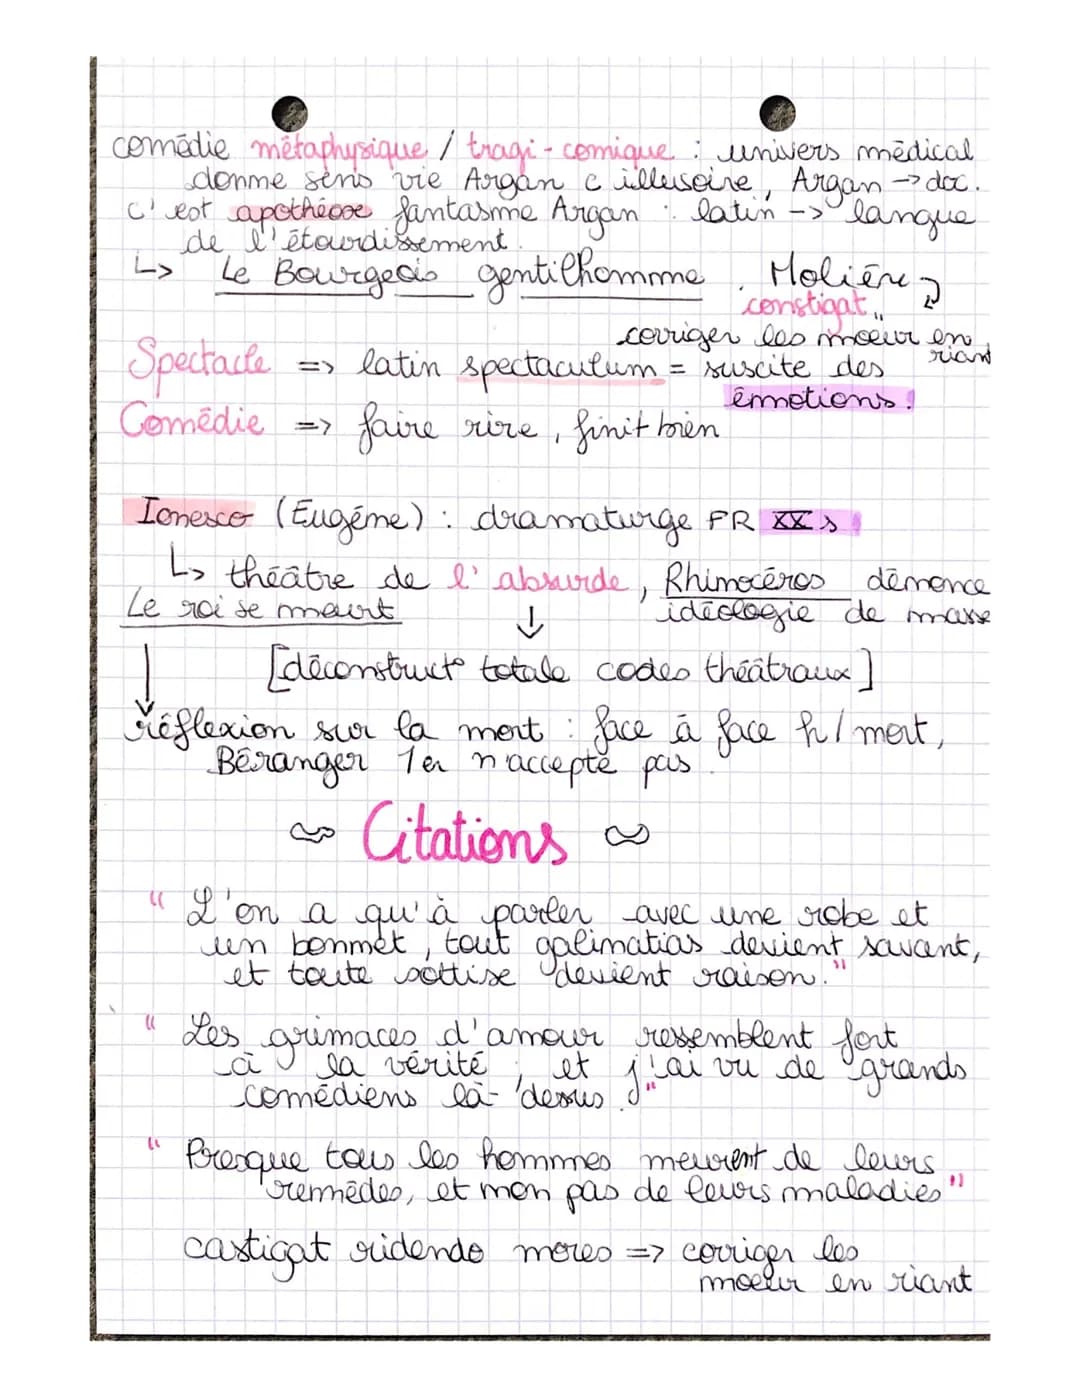 comédie métaphysique / tragi-comique : univers médical
donne sens vie Argan c illusoire, Argan -> doc.
c'est apothéose fantasme Argan : latin -> langue
de l'étourdissement.
↳ Le Bourgeois gentilhomme, Molière
constigat "
corriger les moeur en
riant
Spectacle => latin spectaculum = suscite des
émotions !
Comédie => faire rire, finit bien
Ionesco (Eugéne) : dramaturge FR XXs
↳ théâtre de l'absurde, Rhinocéros démence
Le roi se meurt ↓ idéologie de masse
[déconstruct° totale codes théâtraux]
réflexion sur la mort : face à face h/mort,
Béranger 1er n'accepte pas.
Citations
" L'on a qu'à parler avec une robe et
un bonnet, tout galimatias devient savant,
et toute sottise devient raison."
" Les grimaces d'amour ressemblent fort
à la vérité, et j'ai vu de grands
comédiens là-dessus."
" Presque tous les hommes meurent de leurs
remèdes, et non pas de leurs maladies"
castigat ridendo mores => corriger les
moeur en riant